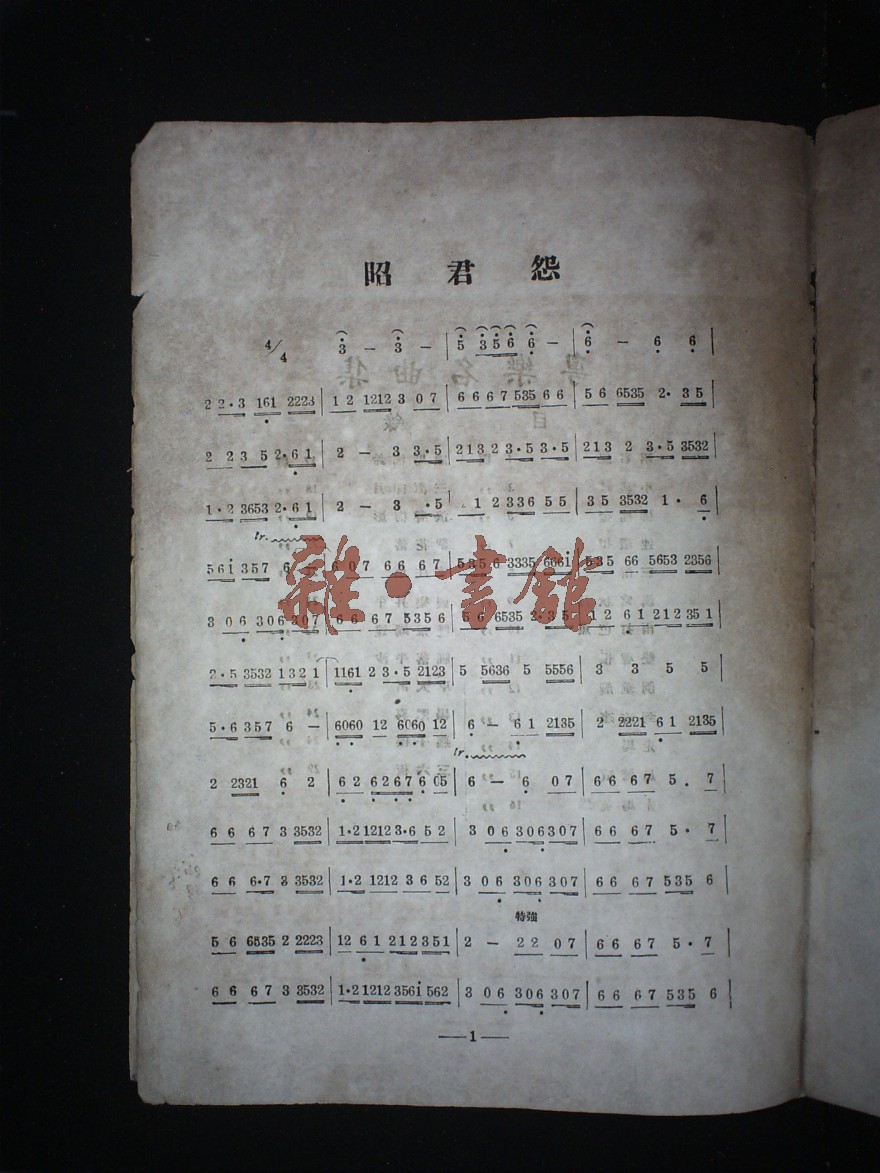 昭君怨
4/4 3 — 3 — | 5 3 5 6 6 — | 6 — 6 6 |
2 2·3 161 2223 | 1 2 1212 3 0 7 | 6 6 6 7 535 6 6 | 5 6 6535 2· 3 5
2 2 3 5 2·6 1 | 2 — 3 3·5 | 213 2 3·5 3·5 | 213 2 3·5 3532
1·2 3653 2·6 1 | 2 — 3 ·5 | 1 2 336 5 5 | 35 3532 1· 6
tr.
561 357 6 — | 6 0 7 6 6 6 7 | 535 6 3335 6661 | 535 66 5653 2356
3 0 6 306 307 | 6 6 6 7 5356 | 56 6535 2·357 | 1 2 6 1 212 351
2·5 3532 132 1 | 1161 2 3·5 2123 | 5 5636 5 5556 | 3 3 5 5
5·6 357 6 — | 6060 12 6060 12 | 6 — 6 1 2135 | 2 2221 6 1 2135
tr.
2 2321 6 2 | 6 2 6267 6 05 | 6 — 6 07 | 6 6 6 7 5 . 7
6 6 6 7 3 3532 | 1·2 1212 3·6 5 2 | 3 0 6 306 307 | 6 6 6 7 5· 7
6 6 6·7 3 3532 | 1·2 1212 3 6 52 | 3 0 6 306 307 | 6 6 6 7 535 6
特強
5 6 6535 2 2223 | 12 6 1 212 351 | 2 — 2 2 07 | 6 6 6 7 5· 7
6 6 6 7 3 3532 | 1·2 1212 3561 562 | 3 0 6 306 307 | 6 6 6 7 535 6
—1—
雜·書館